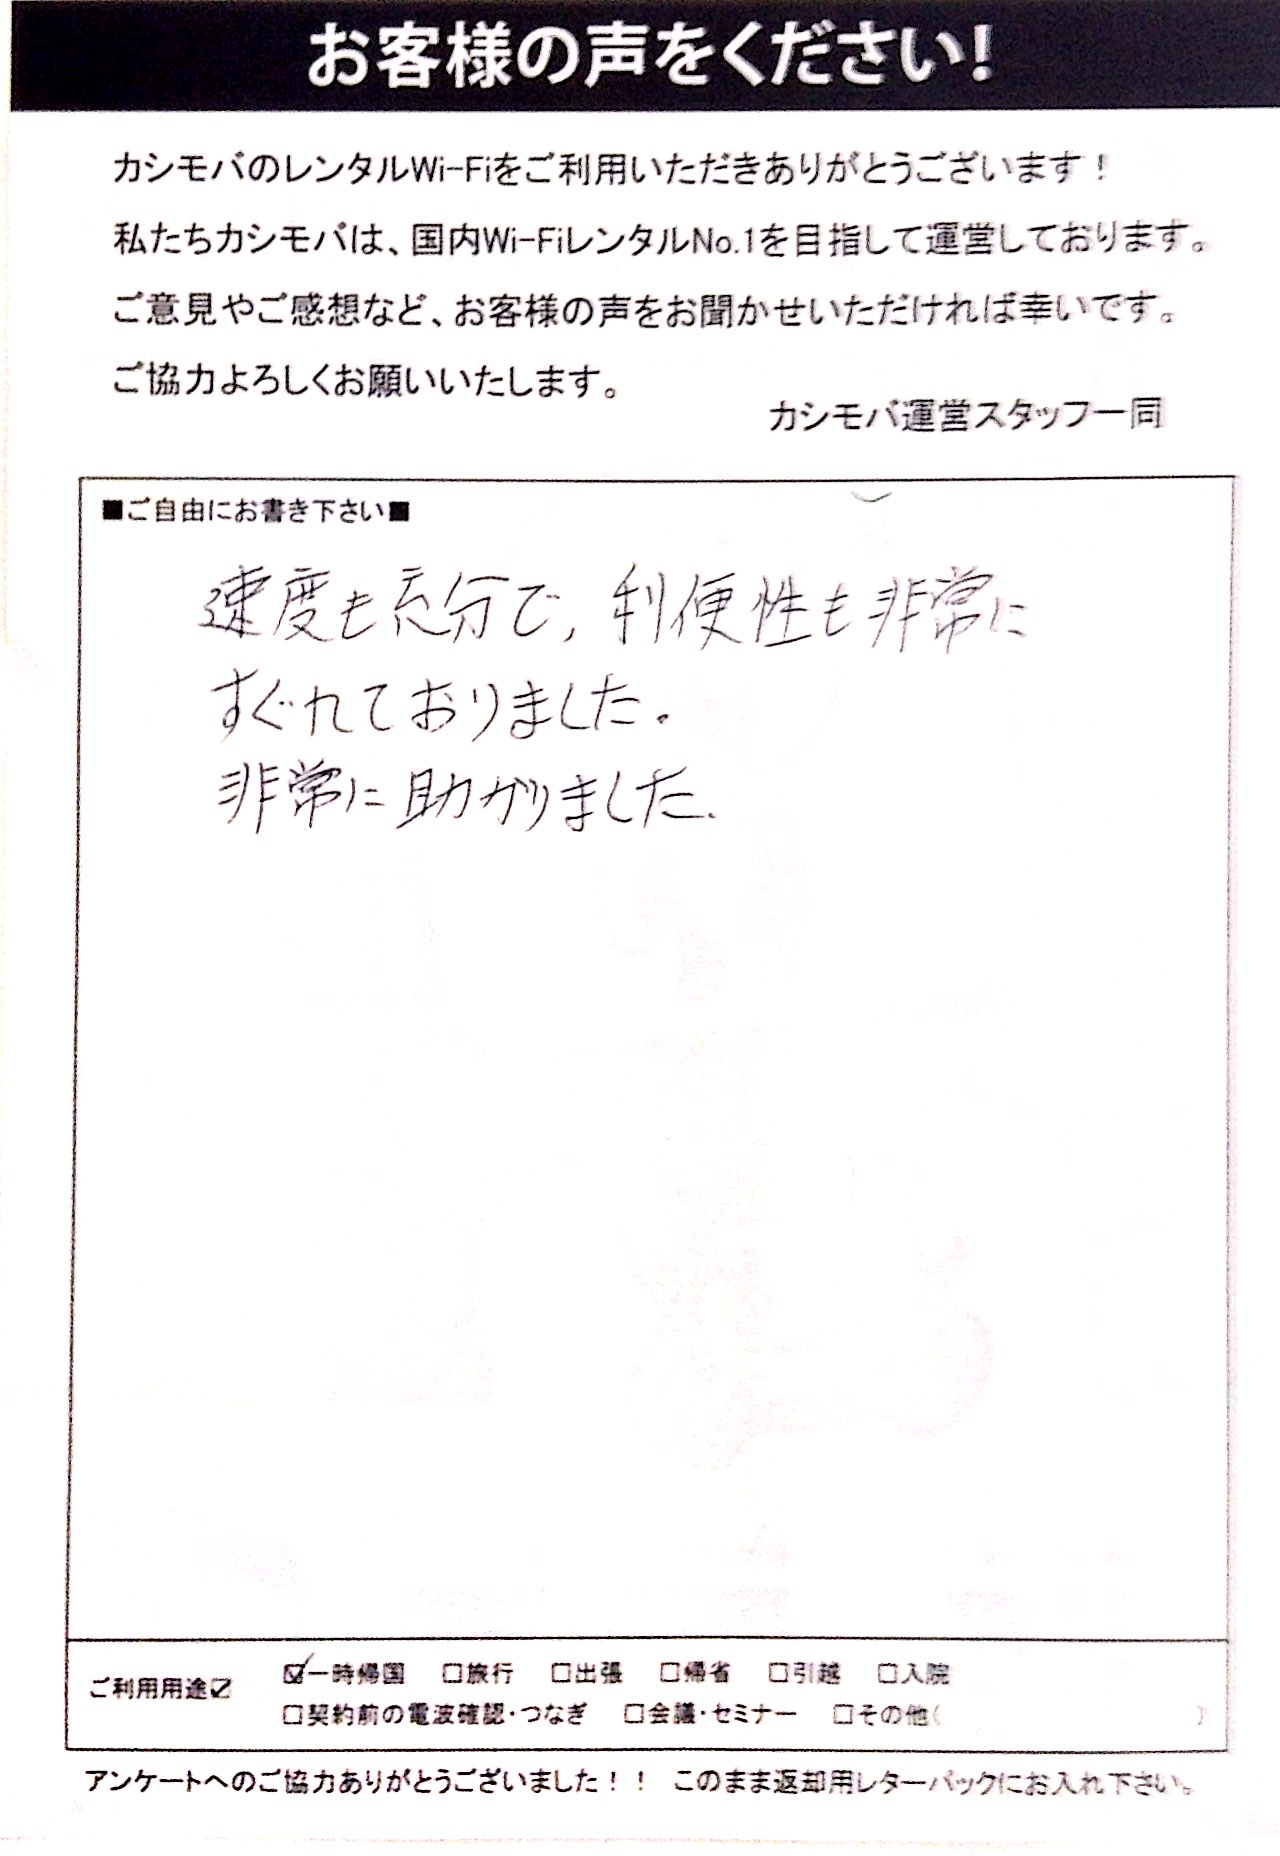 お客様の声をください！
カシモバのレンタルWi-Fiをご利用いただきありがとうございます！
私たちカシモバは、国内Wi-FiレンタルNo.1を目指して運営しております。
ご意見やご感想など、お客様の声をお聞かせいただければ幸いです。
ご協力よろしくお願いいたします。
カシモバ運営スタッフ一同
■ご自由にお書き下さい■
速度も充分で,利便性も非常に
すぐれておりました。
非常に助かりました.
ご利用用途☑
☑一時帰国 □旅行 □出張 □帰省 □引越 □入院
□契約前の電波確認・つなぎ □会議・セミナー □その他( )
アンケートへのご協力ありがとうございました！！ このまま返却用レターパックにお入れ下さい。